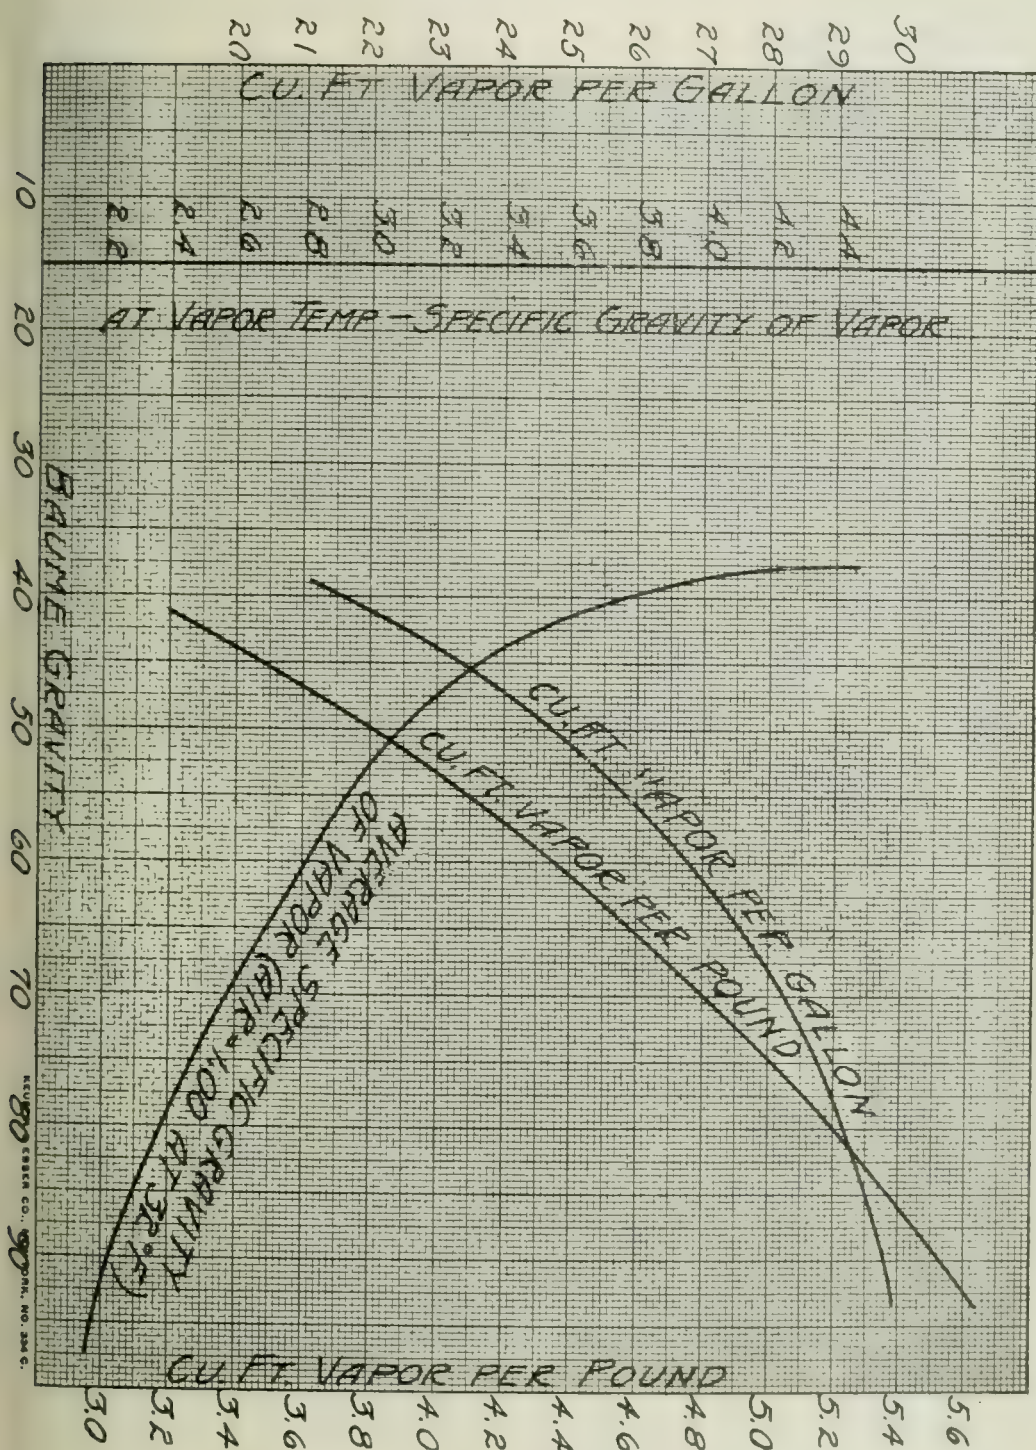 20 21 22 23 24 25 26 27 28 29 30
CU. FT VAPOR PER GALLON
2.2 2.4 2.6 2.8 3.0 3.2 3.4 3.6 3.8 4.0 4.2 4.4
AT VAPOR TEMP - SPECIFIC GRAVITY OF VAPOR
10 20 30 40 50 60 70 80 90
BAUME GRAVITY
CU. FT. VAPOR PER GALLON
CU. FT. VAPOR PER POUND
AVERAGE SPECIFIC GRAVITY
OF VAPOR (AIR = 1.00 AT 32°F)
CU. FT. VAPOR PER POUND
3.0 3.2 3.4 3.6 3.8 4.0 4.2 4.4 4.6 4.8 5.0 5.2 5.4 5.6
ESSER CO. NO. 334 C.